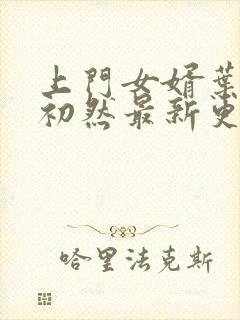 上門女婿葉
初然最新更
哈里法克斯